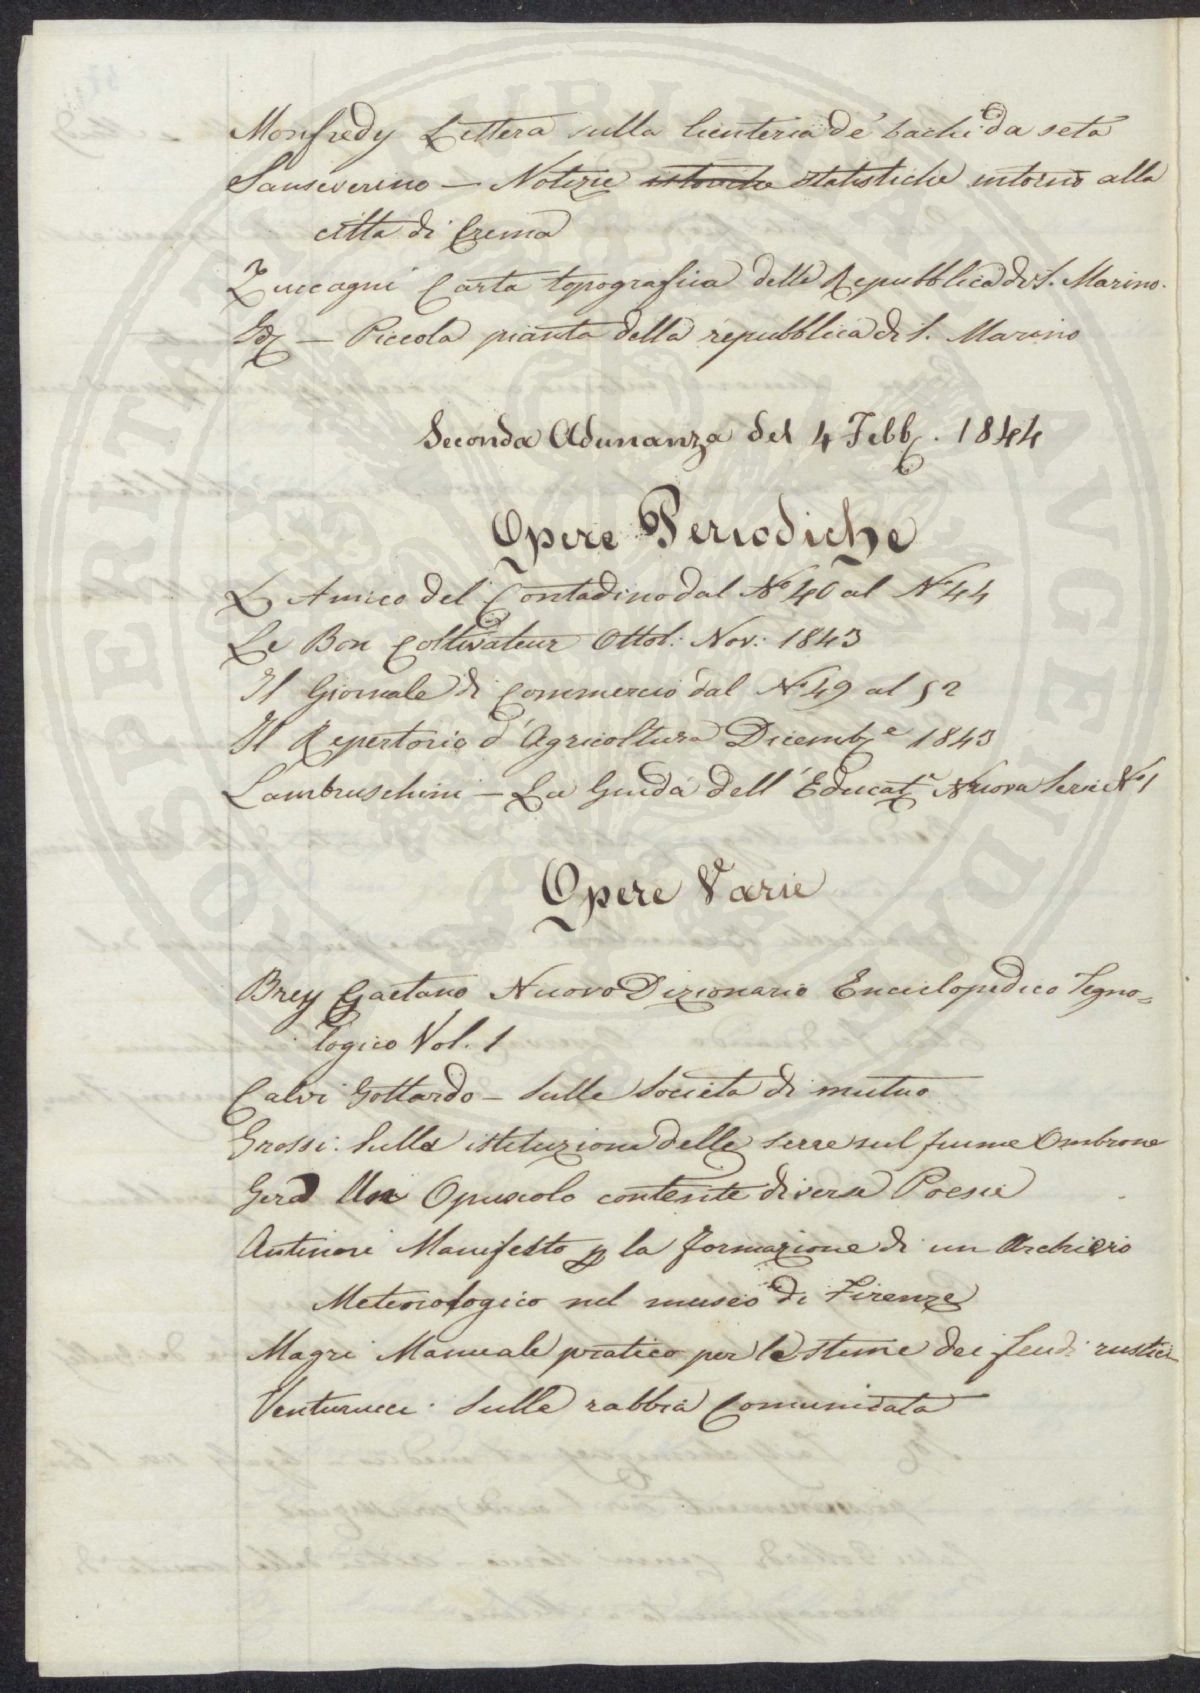 Monfredy Lettera sulla lienteria de' bachi da seta
Sanseverino — Notizie istoriche statistiche intorno alla
citta di Crema
Zuccagni Carta topografica della Repubblica di S. Marino.
Id — Piccola pianta della repubblica di S. Marino
Seconda Adunanza del 4 Febb. 1844
Opere Periodiche
L'Amico del Contadino dal N° 40 al N° 44
Le Bon Coltivateur Ottob: Nov: 1843
Il Giornale di Commercio dal N° 49 al 52
Il Repertorio d'Agricoltura Dicembe 1843
Lambruschini — La Guida dell'Educatr Nuova Serie N° 1
Opere Varie
Brey Gaetano Nuovo Dizionario Enciclopedico Tegno=
logico Vol. 1
Calvi Gottardo — Sulle Societa di mutuo
Grossi: Sulla istituzione delle serre sul fiume Ombrone
Gera Un Opuscolo contente diverse Poesie
Antinori Manifesto p la formazione di un Archivio
Meteorologico nel museo di Firenze
Magri Manuale pratico per le stime dei fondi rustici
Venturucci. Sulla rabbia Comunicata
PROSPERITATI PUBLICAE AVGENDAE